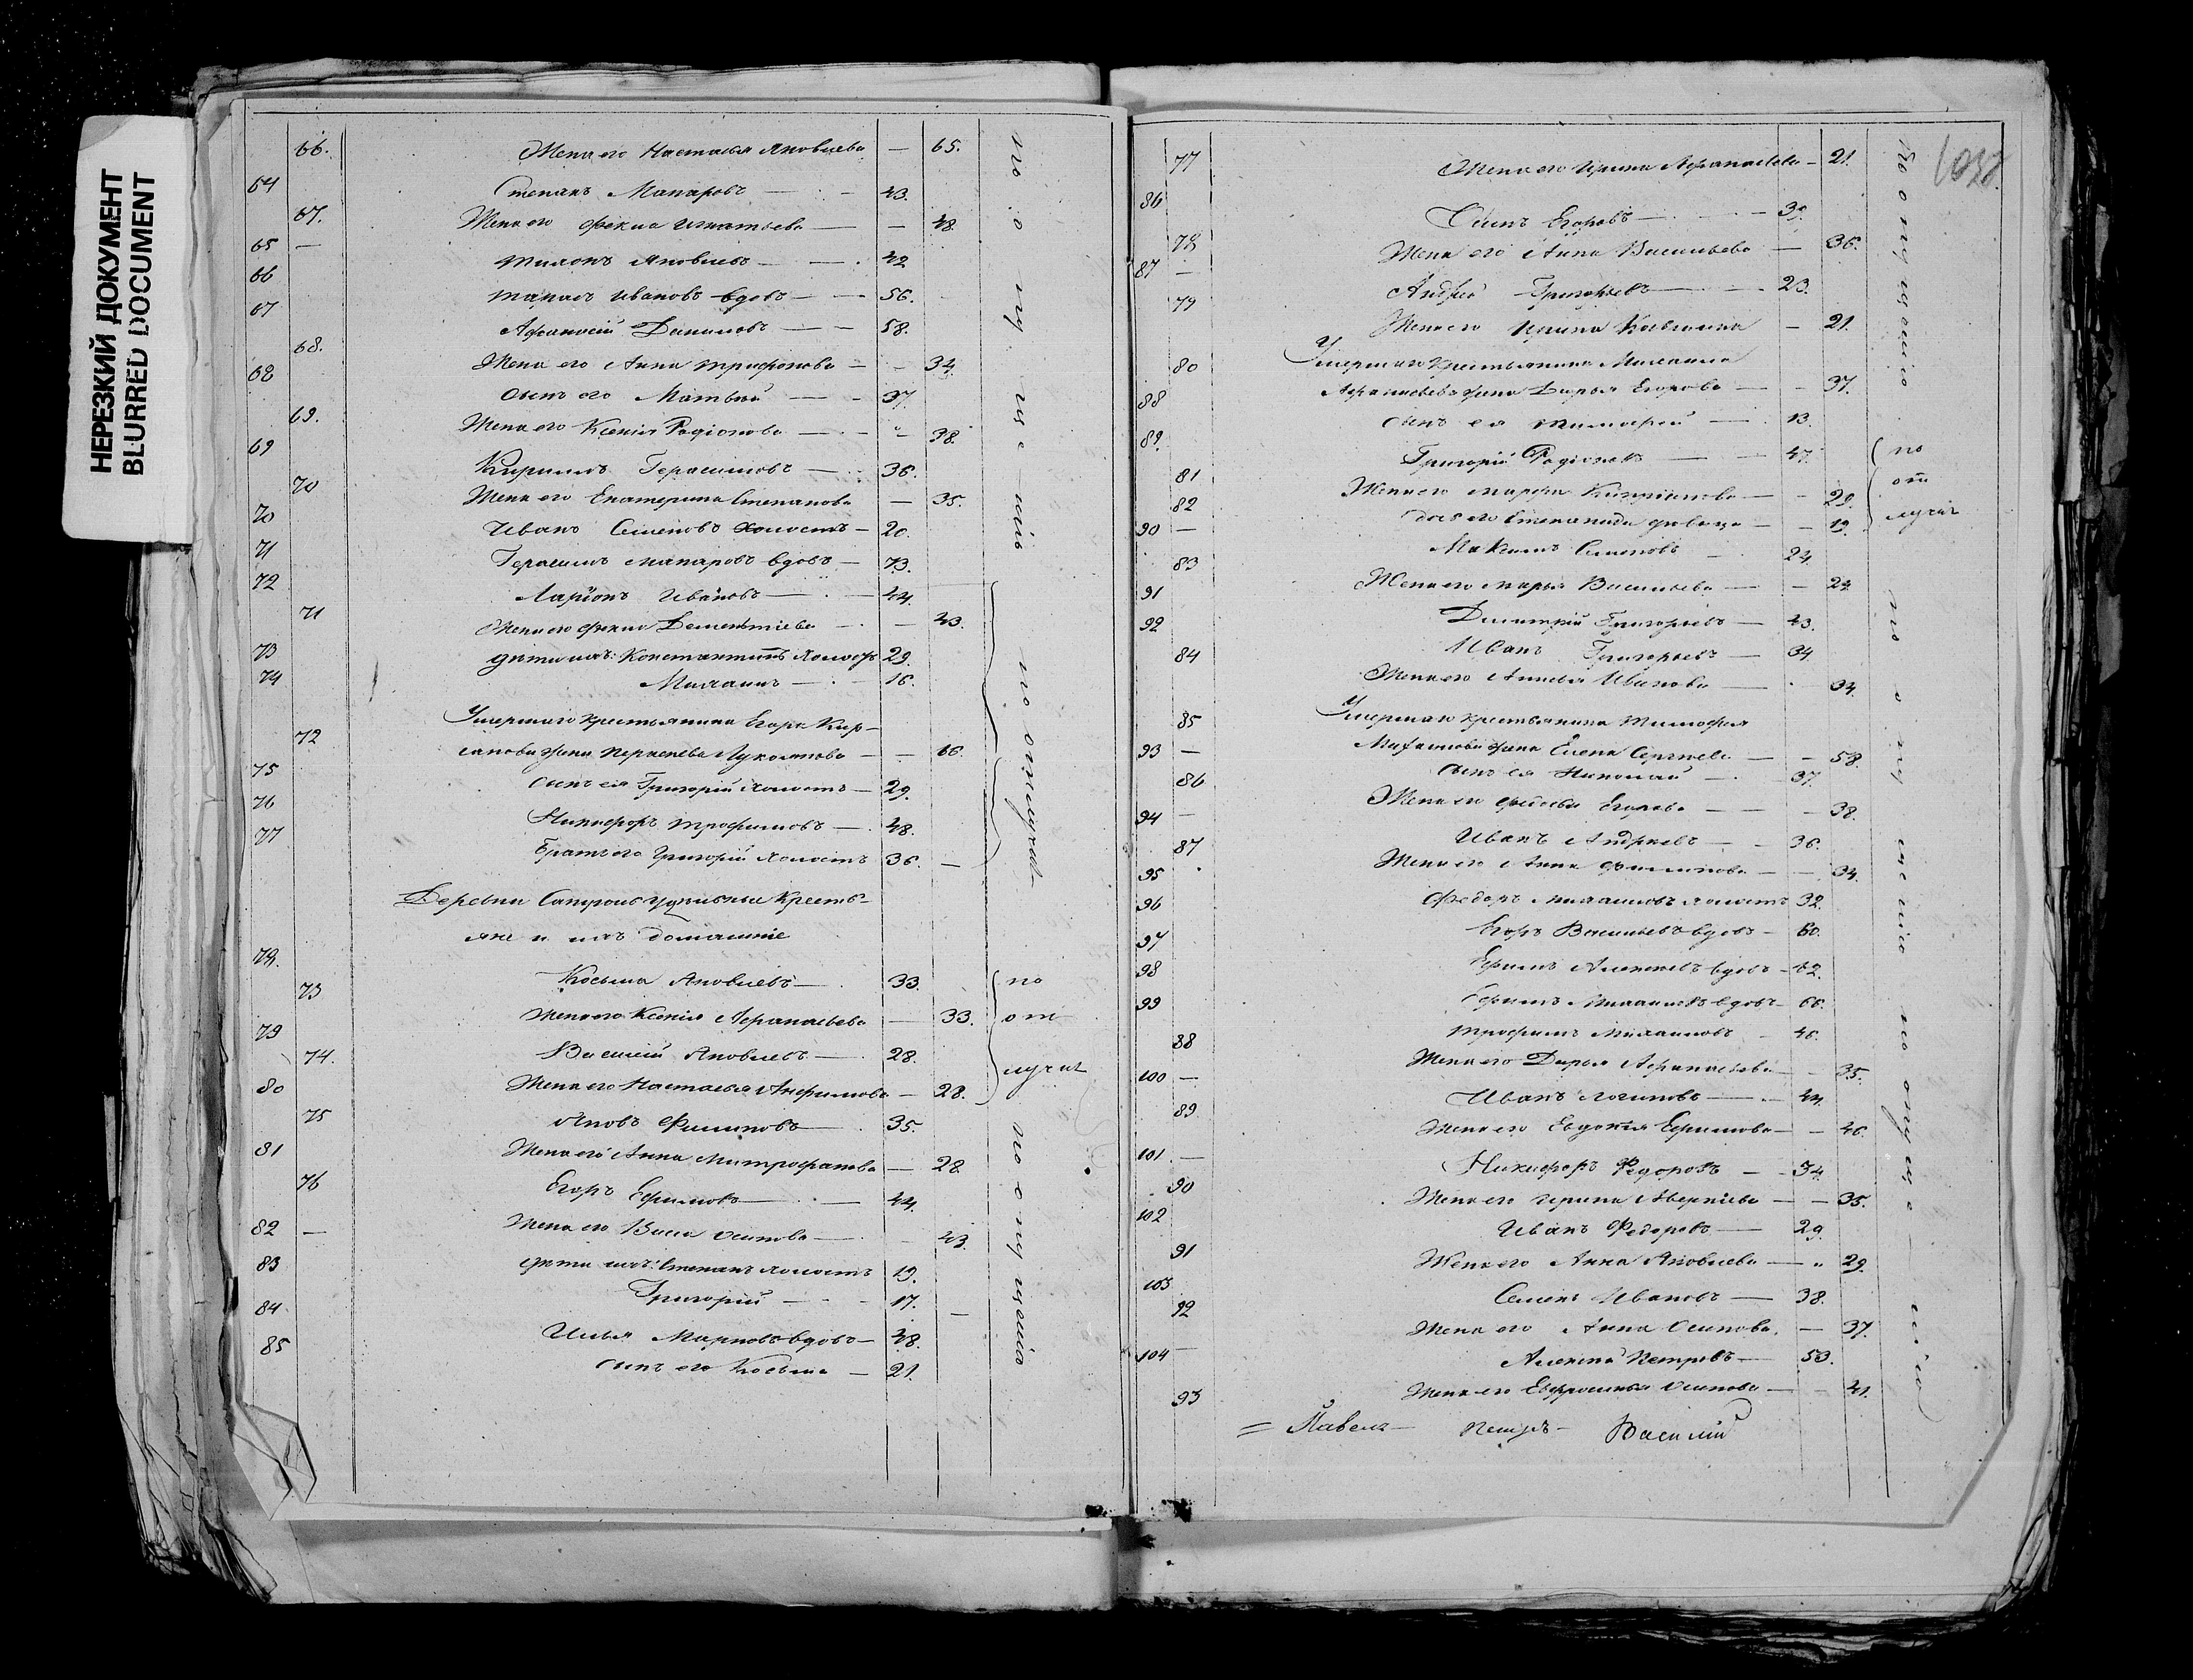 НЕРЕЗКИЙ ДОКУМЕНТ
BLURRED DOCUMENT
66. Жена его Настасья Яковлева — 65.
64 Степанъ Макаровъ — 43.
67. Жена его Фекла Игнатьева — 48.
65 — Тихонъ Яковлевъ — 42
66 Иванов вдовъ — 56.
67 Афанасій Даниловъ — 58.
68. Жена его Анна Трифонова — 34.
68 сынъ его Матвѣй — 37.
69. Жена его Ксенія Радіонова — 38.
69 Кирилъ Герасимовъ — 36.
70 Жена его Екатерина Степанова — 35.
70 Иванъ Семеновъ холостъ — 20.
71 Герасимъ Макаровъ вдовъ — 73.
72 Ларіонъ Ивановъ — 44.
71 Жена его Фекла Дементіева — 43.
73 дѣти ихъ: Константинъ холостъ 29.
74 Михаилъ — 16.
Умершаго крестьянина Егора Кир-
72 санова жена Лукоянова — 66.
75 сынъ ея Григорій холостъ — 29.
76 Никифоръ Трофимовъ — 48.
77 Братъ его Григорій холостъ 36. —
Деревни удѣльные кресть-
яне и ихъ домашніе
78. Косьма Яковлевъ — 33.
73 Жена его Ксенія Афанасьева — 33.
79 Василій Яковлевъ — 28.
74. Жена его Настасья Анфимова — 28.
80 Яковъ Филиповъ — 35.
75 Жена его Анна Митрофанова — 28
81 Егоръ Ефимовъ — 44.
76 Жена его Васса Осипова — 43.
82 — дѣти ихъ: Степанъ холостъ 19.
83 Григорій — 17.
84 Илья Марковъ вдовъ — 48.
85 сынъ его Косьма — 21.
по о пу ще нію
по отлучкѣ
по
от
лучкѣ
по опущенію
77 Жена его Ирина Афанасьева — 21.
86 Егоровъ —
78 Жена его Анна Васильева — 36.
87 — Андрей Григорьевъ — 23.
79 Жена его Ирина — 21.
Умершаго крестьянина Михаила
80 Афанасьева жена Дарья Егорова — 37.
88 сынъ ея Тимофей — 13.
89. Григорій Радіоновъ — 47.
81 Жена его Марфа — 29.
82 дочь его Степанида дѣвица — 19.
90 — Максимъ Семеновъ — 24.
83 Жена его Марья Васильева — 24
91 Дмитрій Григорьевъ — 43.
92 Иванъ Григорьевъ — 34
84 Жена его Иванова — 34.
Умершаго крестьянина Тимофея
85 жена Елена Сергѣева — 58.
93 — сынъ ея Николай — 37.
86 Жена его Егорова — 38.
94 — Иванъ Андреевъ — 36.
87 Жена его Анна Филипова — 34.
95 Федоръ Михаиловъ холостъ 32.
96 Егоръ Васильевъ вдовъ — 60.
97 Ефимъ Алексеевъ вдовъ — 62.
98 Ефимъ вдовъ — 66.
99 Трофимъ Михаиловъ — 46.
88 Жена его Дарья Афанасьева — 35.
100 — Иванъ Логиновъ — 44.
89 Жена его Евдокія Ефимова — 46.
101. — Никифоръ Федоровъ — 34.
90 Жена его Ирина Аверкіева — 35.
102 Иванъ Федоровъ — 29.
91 Жена его Анна Яковлева — 29.
103 Семенъ Ивановъ — 38.
92 Жена его Анна Осипова — 37.
104 — Алексѣй Петровъ — 53.
93 Жена его Евфросинья Осипова — 41.
= Павелъ — Петръ — Василій
по опущенію
по
от
лучкѣ
по о пу щенію
по опуще — нію